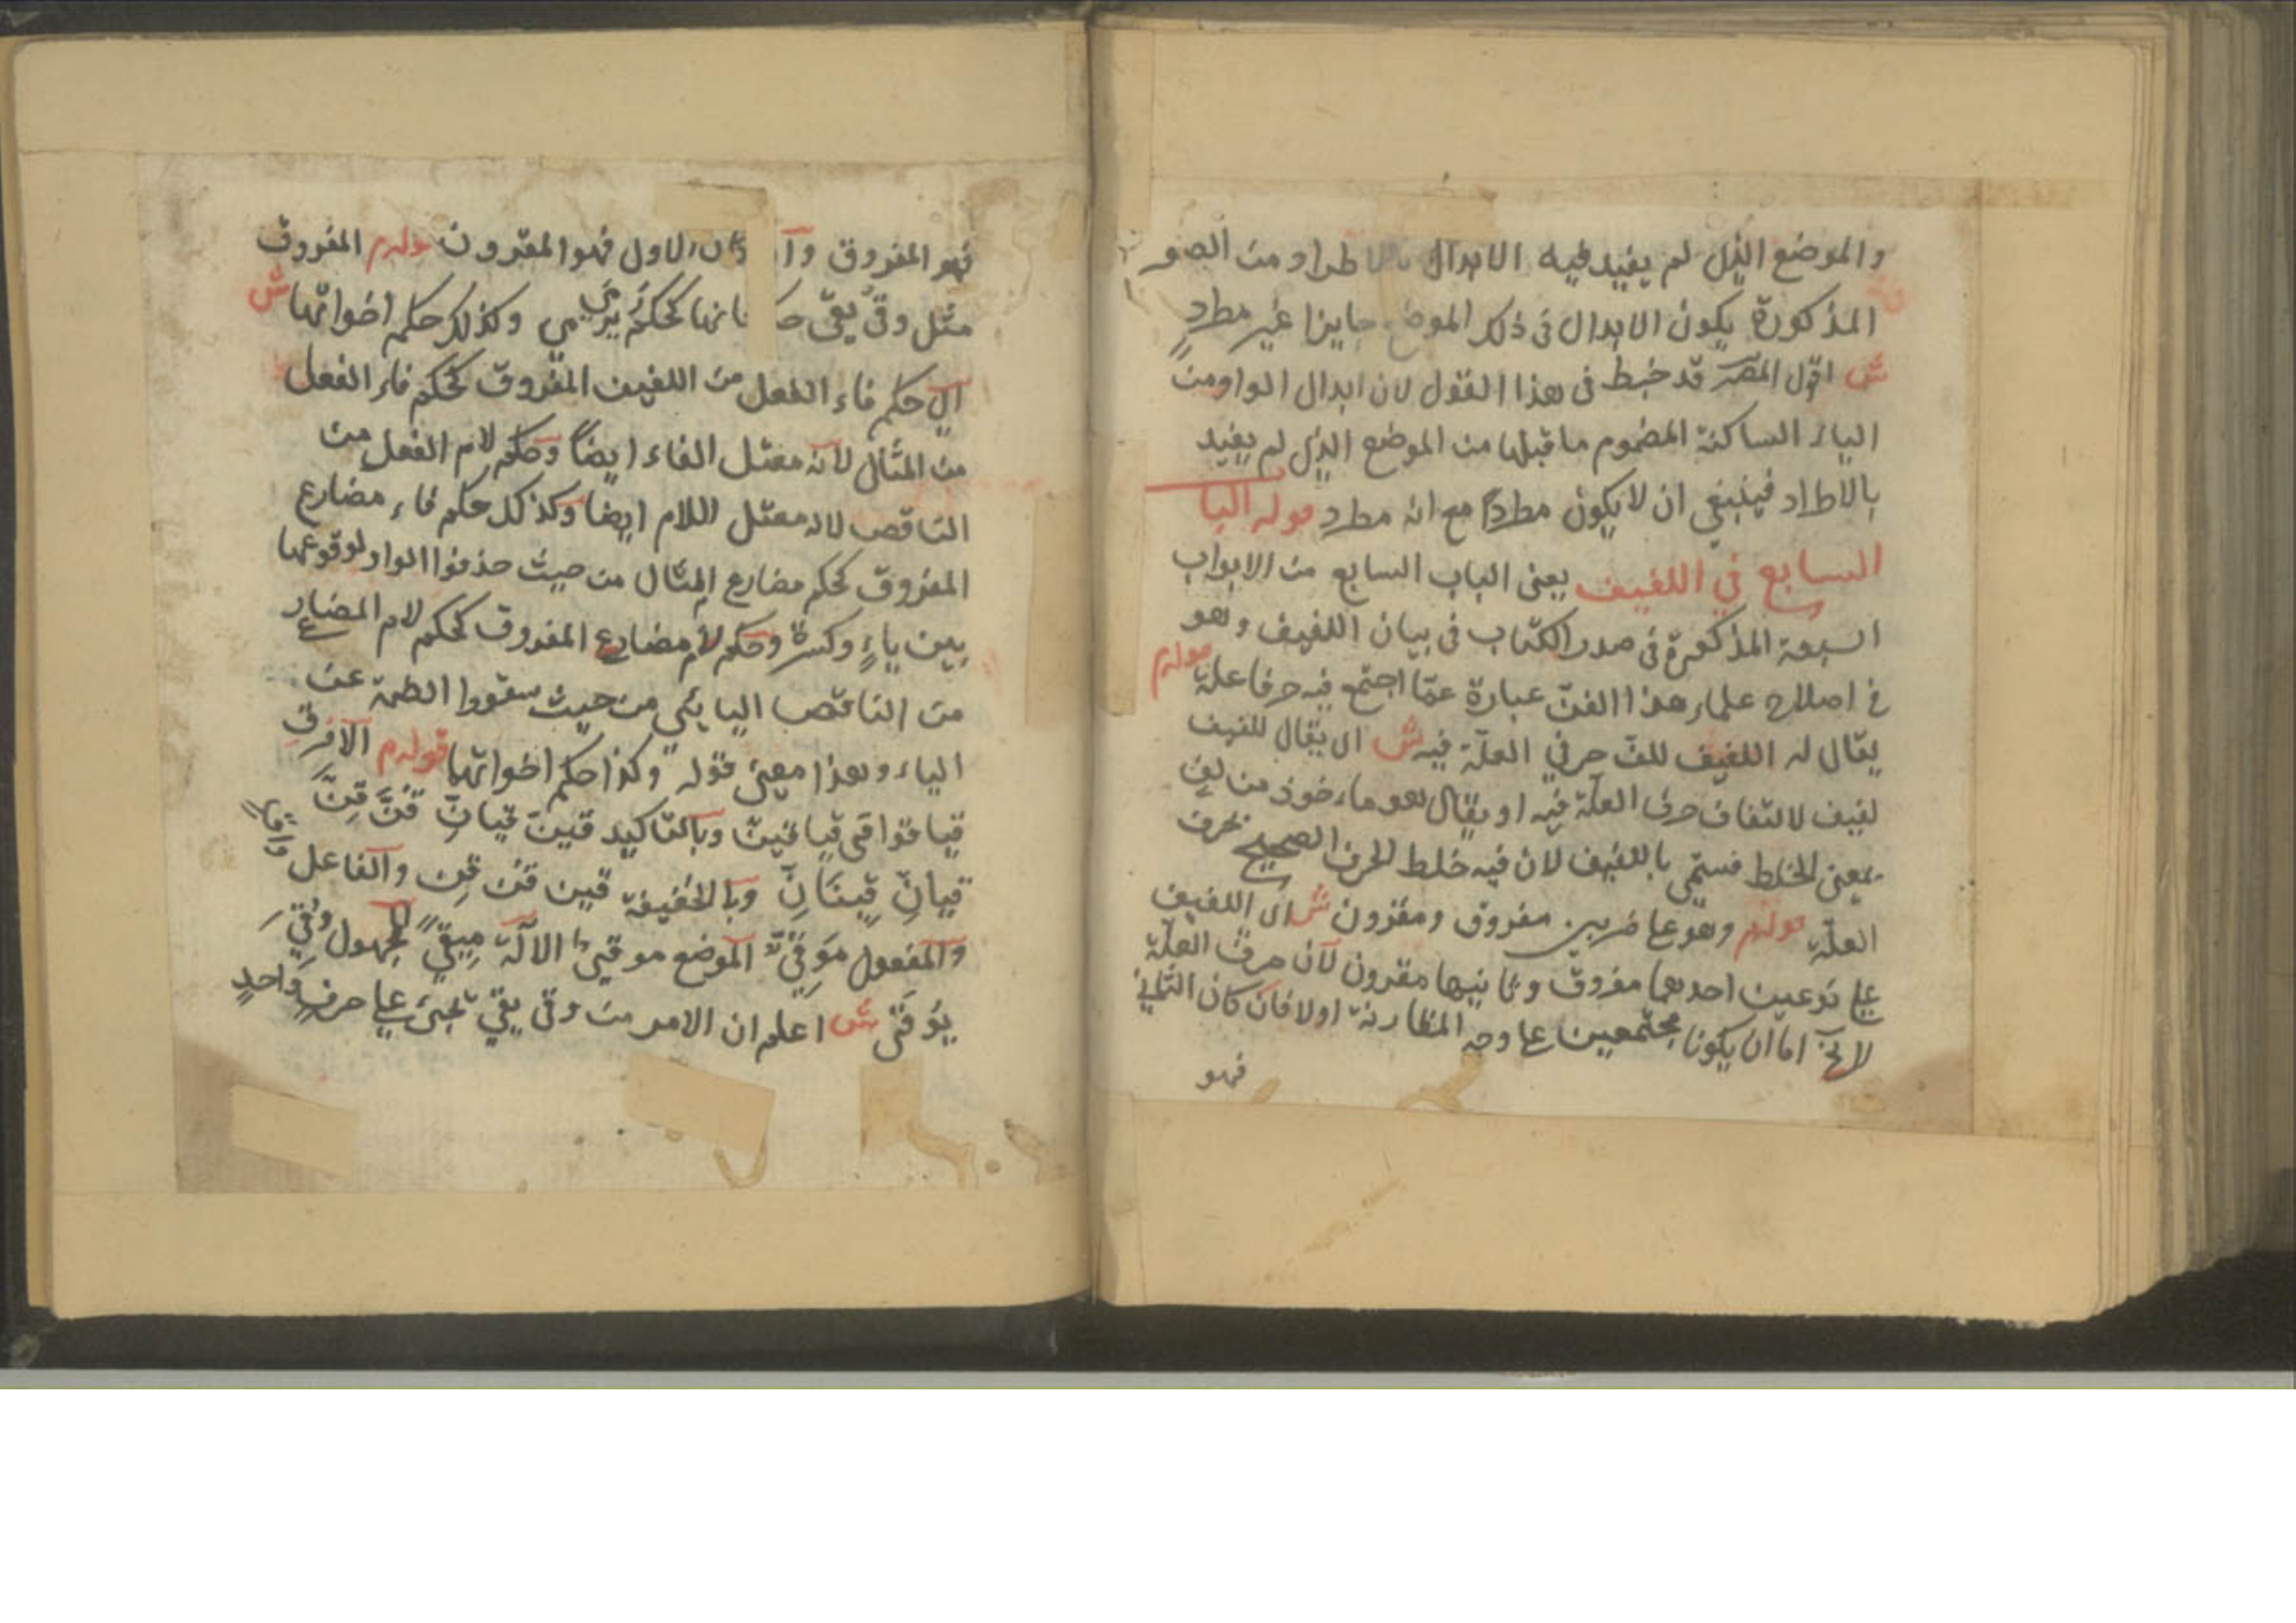 والموضع الذى لم يفيد فيه الابدال بالاطراد من الصور
المذكورة يكون الابدال فى ذلك الموضع جايزا غير مطرد
ش اقول المصر قد خبط فى هذا القول لان ابدال الواو من
الياء الساكنة المضموم ما قبلها من الموضع الذى لم يفيد
بالاطراد فينبغى ان لا يكون مطردًا مع انه مطرد قوله البا
السابع في اللفيف يعنى الباب السابع من الابواب
السبعة المذكورة فى صدر الكتاب فى بيان اللفيف وهو
فى اصلاح علماء هذا الفنّ عبارة عمّا اجتمع فيه حرفا علة قولهم
يقال له اللفيف للفّ حرفي العلّة فيه ش اى يقال للفيف
لفيف لالتفاف حرفى العلّة فيه او يقال هو ماءخوذ من لفّ
بمعنى الخلط فسمّى باللفيف لان فيه خلط الحرف الصحيح بحرف
العلّة قولهم وهو على ضربين مفروق ومقرون ش اى اللفيف
على نوعين احدهما مفروق وثانيهما مقرون لآن حرف العلّة
لا يخ اما ان يكونا مجتمعين على وجه المقارنة اولا فان كان الثانى
فهو
فهو المفروق وآن كان الاول فهو المقرون قولهم المفروق
مثل وقى يقى كحكم يرمى وكذلك حكم اخواتها ش
آى حكم فاء الفعل من اللفيف المفروق كحكم فاء الفعل
من المثال لآنه معتل الفاء ايضاً وحكم لام الفعل من
الناقص لانه معتل اللام ايضا وكذلك حكم فاء مضارع
المفروق كحكم مضارع المثال من حيث حذفوا الواو لوقوعها
بين ياءٍ وكسرة وحكم لام مضارع المفروق كحكم لام المضارع
من الناقص اليائى من حيث سقوا الضمة عن
الياء وهذا معنى قوله وكذا حكم اخواتها قولهم الآمر قِ
قيا قوا قى قيا قين وبالتاكيد قينّ قيانِّ قُنَّ قِنَّ
قيانِّ قينَانِّ وبالخفيفة قين قُن قِن والفاعل واقٍ
والمفعول مَوقِىّ الموضع موقىً الآلة مِيقىً المجهول وُقِىَ
يُوقَى ش اعلم ان الامر من وقى يقى تجئ على حرفٍ واحدٍ